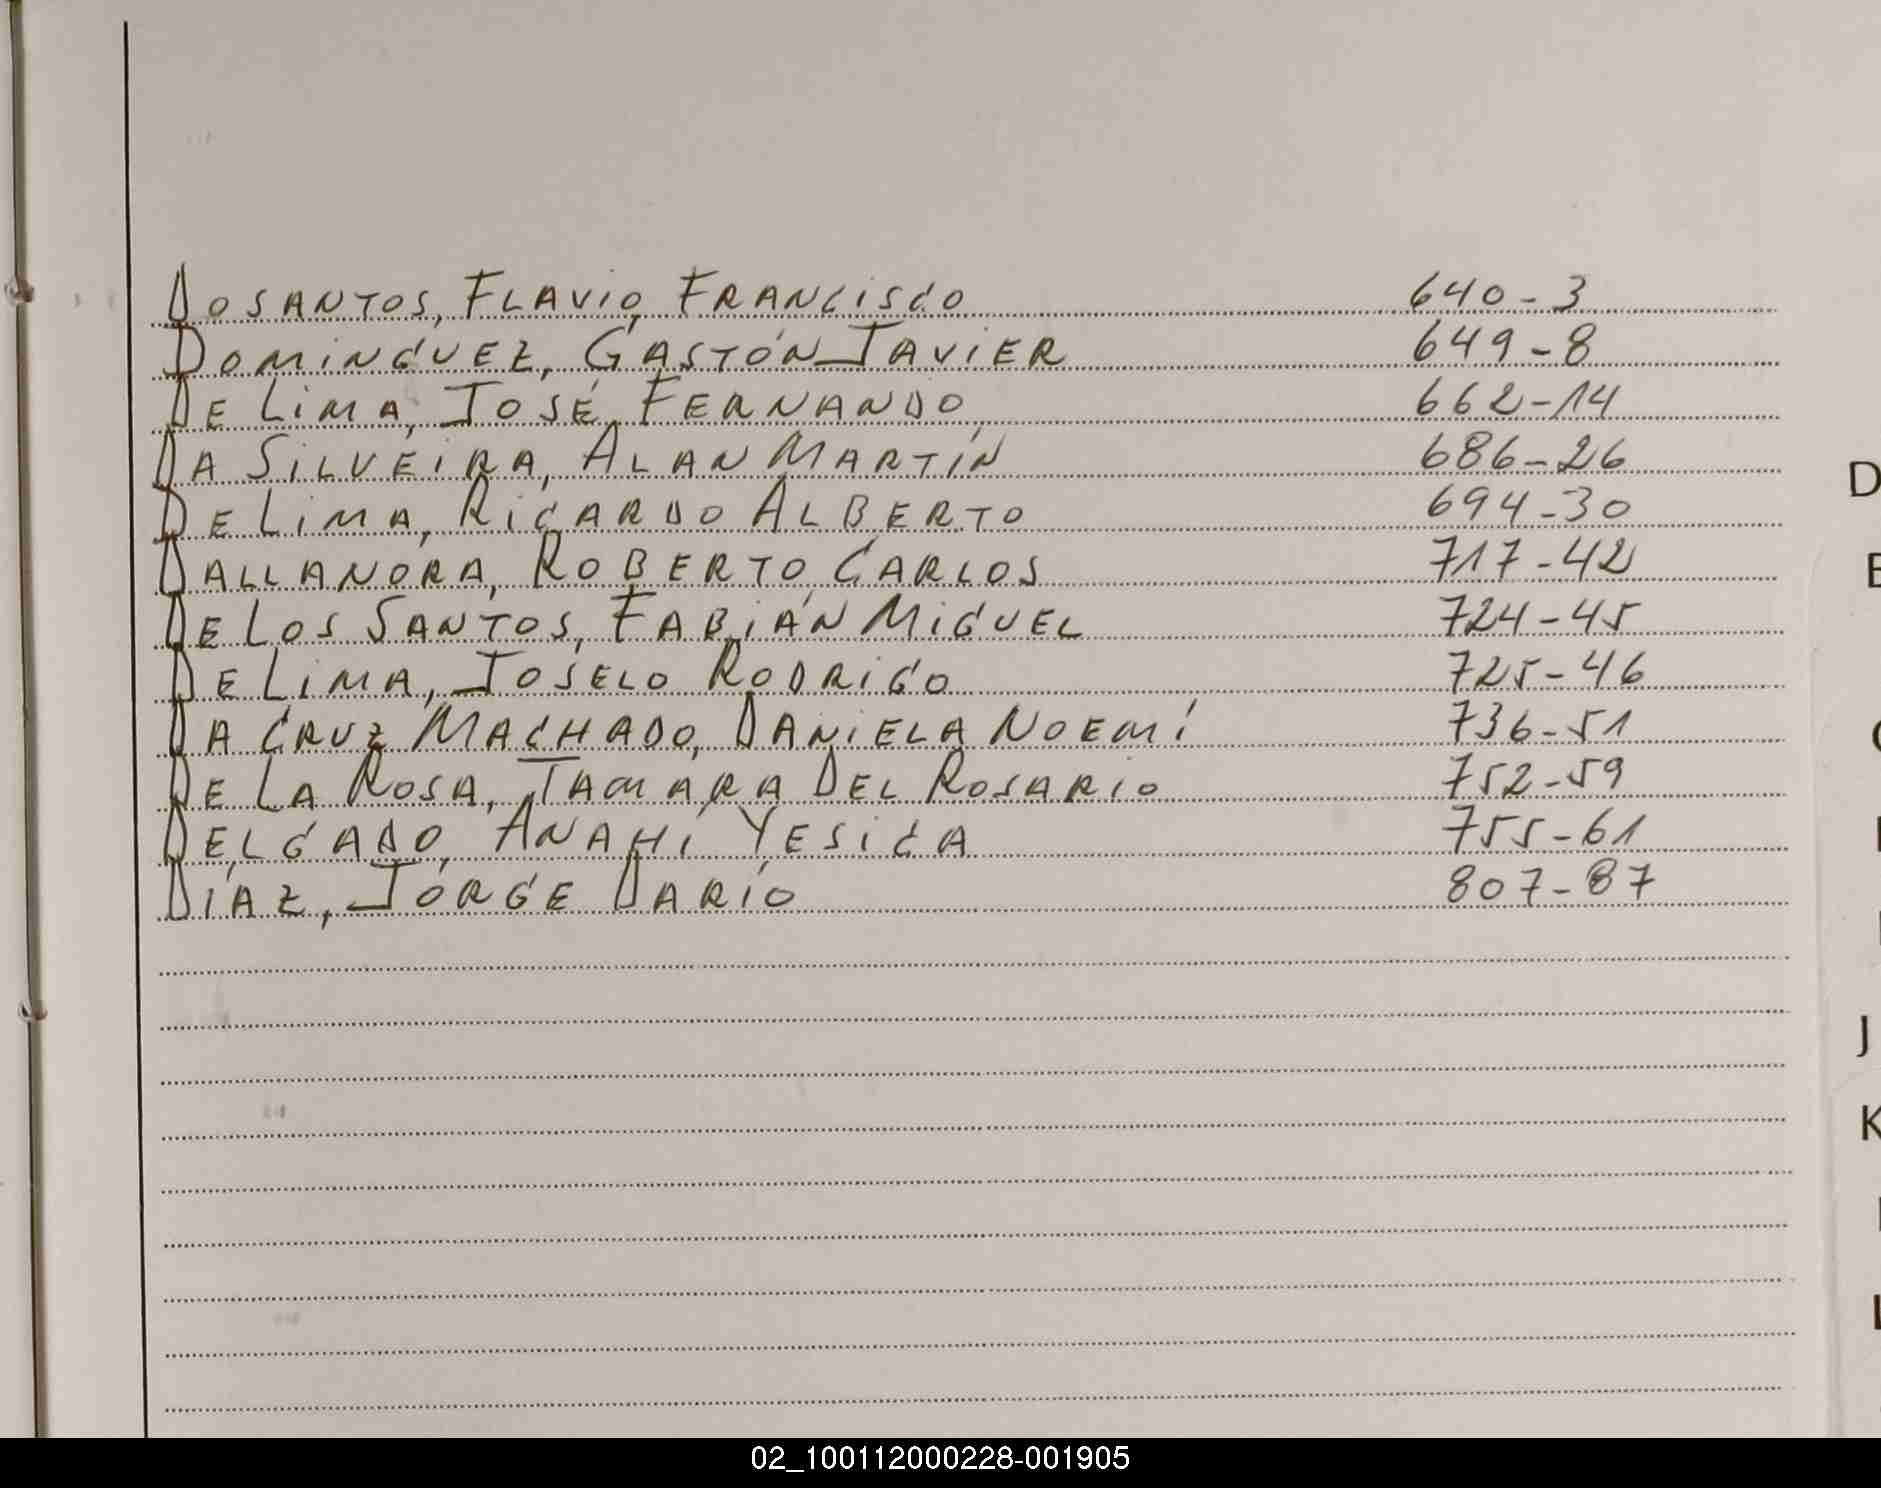 DOSANTOS, FLAVIO FRANCISCO 640-3
DOMINGUEZ, GASTÓN JAVIER 649-8
DE LIMA, JOSÉ FERNANDO 662-14
DA SILVEIRA, ALAN MARTÍN 686-26
DE LIMA, RICARDO ALBERTO 694-30
DALLANORA, ROBERTO CARLOS 717-42
DE LOS SANTOS, FABIÁN MIGUEL 724-45
DE LIMA, JOSELO RODRIGO 725-46
DA CRUZ MACHADO, DANIELA NOEMÍ 736-51
DE LA ROSA, TAMARA DEL ROSARIO 752-59
DELGADO, ANAHÍ YESICA 755-61
DÍAZ, JORGE DARÍO 807-87
D
J
K
02_100112000228-001905